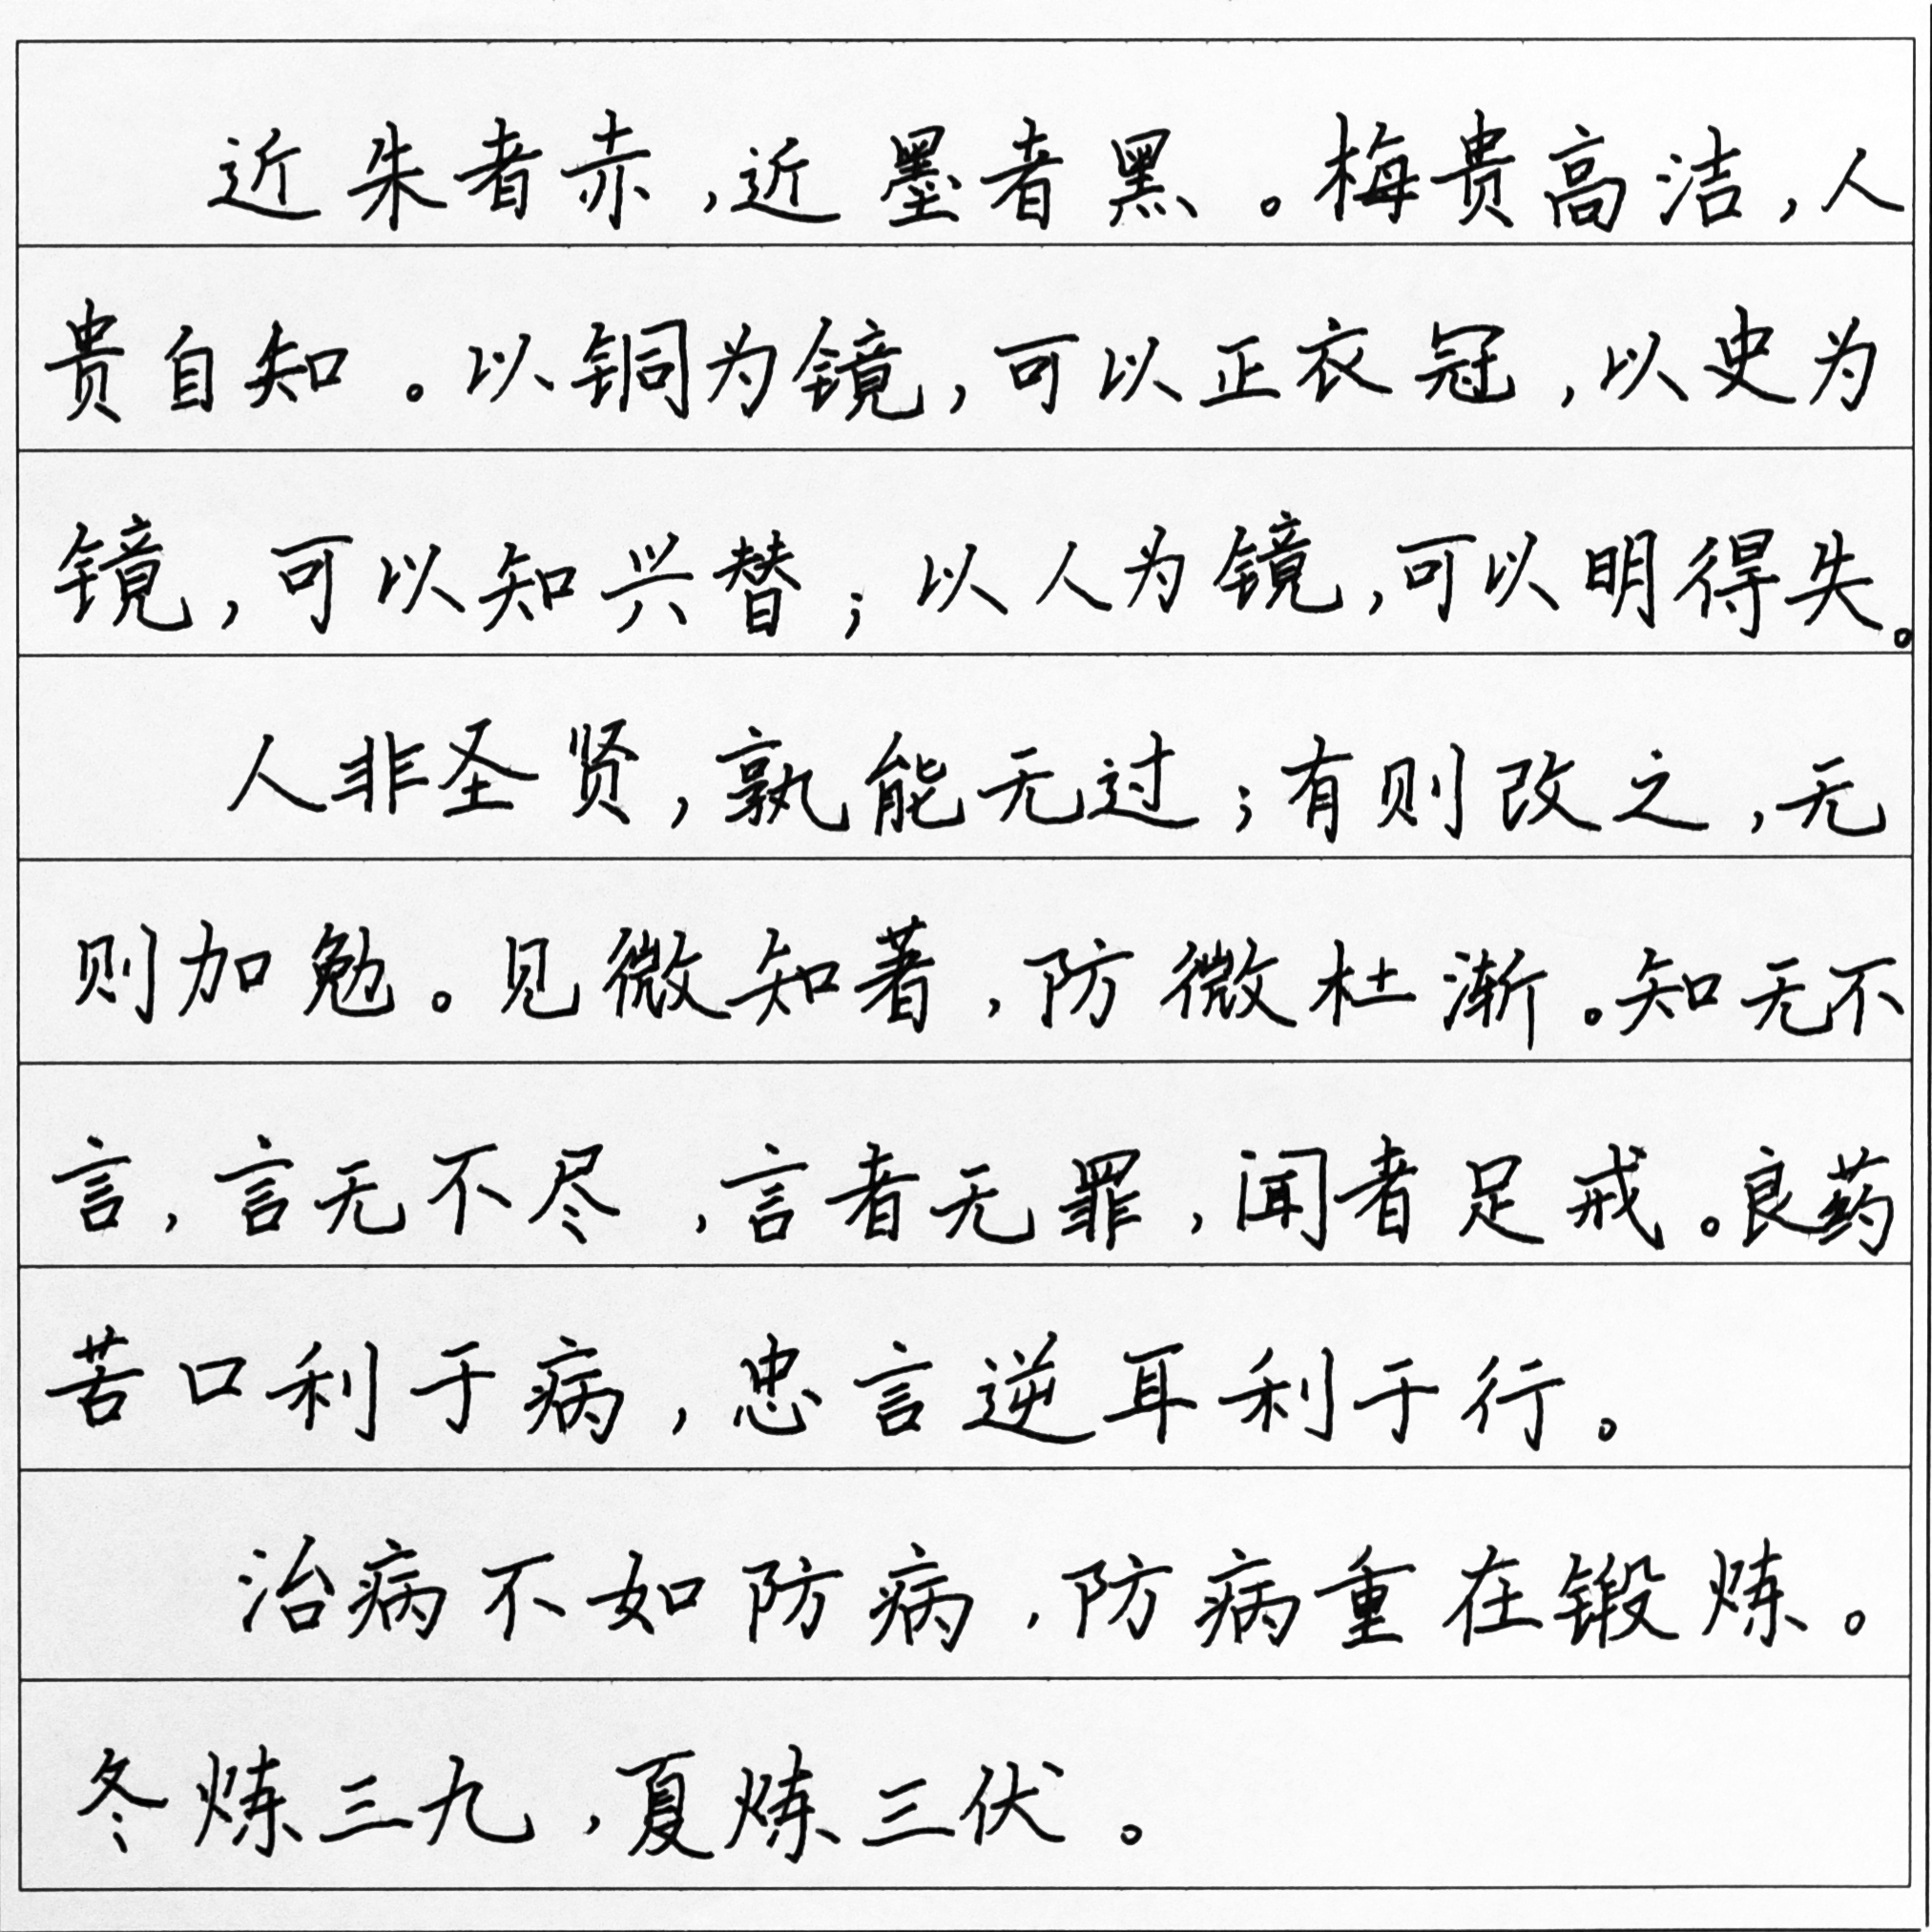 近朱者赤,近墨者黑。梅贵高洁,人
贵自知。以铜为镜,可以正衣冠,以史为
镜,可以知兴替;以人为镜,可以明得失。
人非圣贤,孰能无过;有则改之,无
则加勉。见微知著,防微杜渐。知无不
言,言无不尽,言者无罪,闻者足戒。良药
苦口利于病,忠言逆耳利于行。
治病不如防病,防病重在锻炼。
冬炼三九,夏炼三伏。